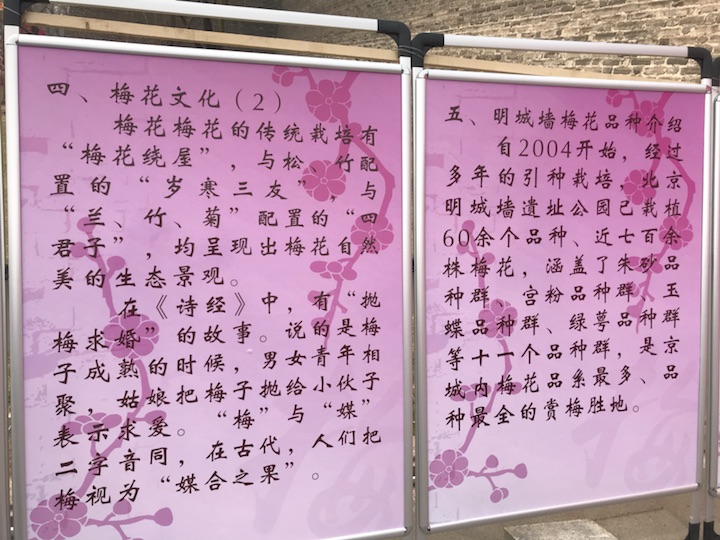 四、梅花文化（2）
梅花梅花的传统栽培有
“梅花绕屋”，与松、竹配
置的“岁寒三友”，与
“兰、竹、菊”配置的“四
君子”，均呈现出梅花自然
美的生态景观。
在《诗经》中，有“抛
梅求婚”的故事。说的是梅
子成熟的时候，男女青年相
聚，姑娘把梅子抛给小伙子
表示求爱。“梅”与“媒”
二字音同，在古代，人们把
梅视为“媒合之果”。
五、明城墙梅花品种介绍
自2004开始，经过
多年的引种栽培，北京
明城墙遗址公园已栽植
60余个品种、近七百余
株梅花，涵盖了朱砂品
种群、宫粉品种群、玉
蝶品种群、绿萼品种群
等十一个品种群，是京
城内梅花品系最多、品
种最全的赏梅胜地。